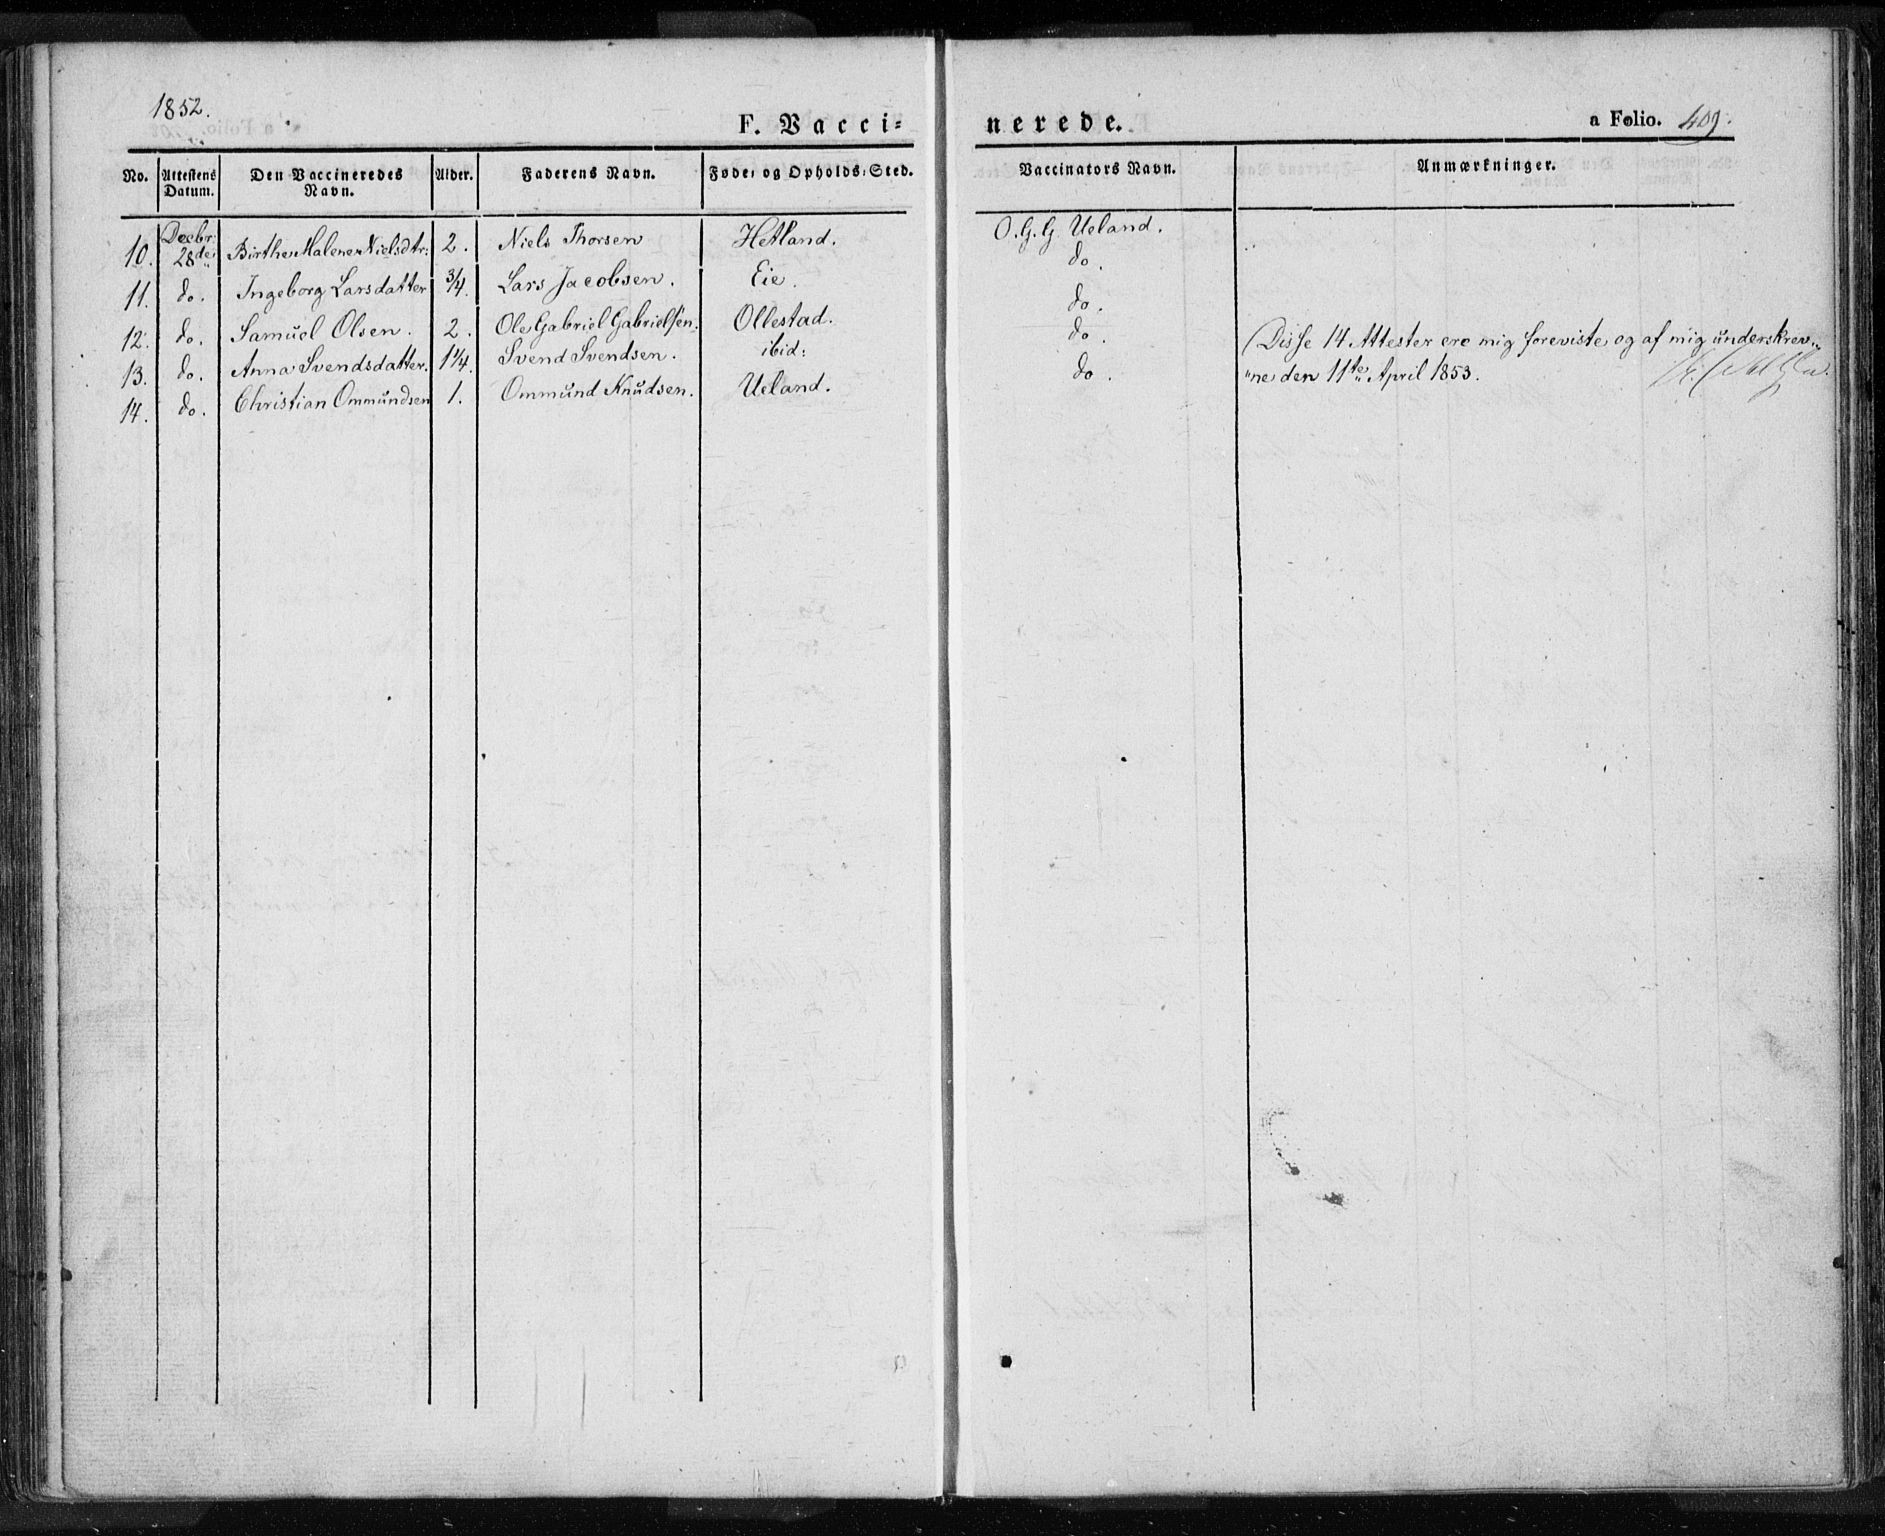 1852.
F. Vacci= nerede. a Folio. 409.
No. Attestens Datum. Den Vaccineredes Navn. Alder. Faderens Navn. Føde= og Opholds=Sted. Vaccinators Navn. Anmærkninger.
10. Decbr: 28de Birthe Malene Nielsdtr: 2. Niels Thorsen Hetland. O. G. G. Ueland.
11. do. Ingeborg Larsdatter 3/4. Lars Jacobsen. Eie. do.
12. do. Samuel Olsen. 2. Ole Gabriel Gabrielsen. Ollestad. do.
13. do. Anna Svendsdatter. 1 1/4. Svend Svendsen. ibid: do.
14. do. Christian Ommundsen 1. Ommund Knudsen. Ueland. do.
Disse 14 Attester ere mig foreviste og af mig underskrev„
„ne den 11te April 1853.